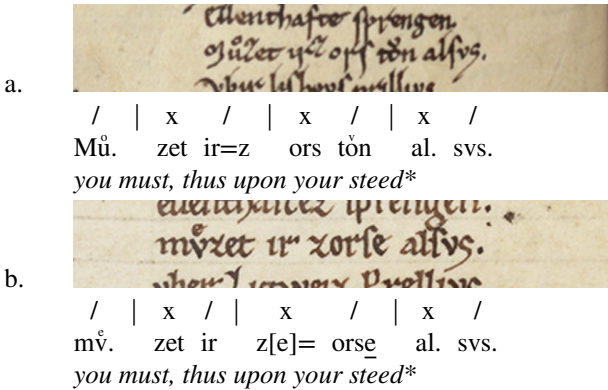 Ellenthafte sprengen.
Můzet irz ors tvͦn alsvs.
a.
/ | x / | x / | x /
Mů. zet ir=z ors toͮn al. svs.
you must, thus upon your steed*
ellenthaftez sprengen.
mvͤzet ir zorse alsvs.
b.
/ | x / | x / | x /
mvͤ. zet ir z[e]= orse al. svs.
you must, thus upon your steed*